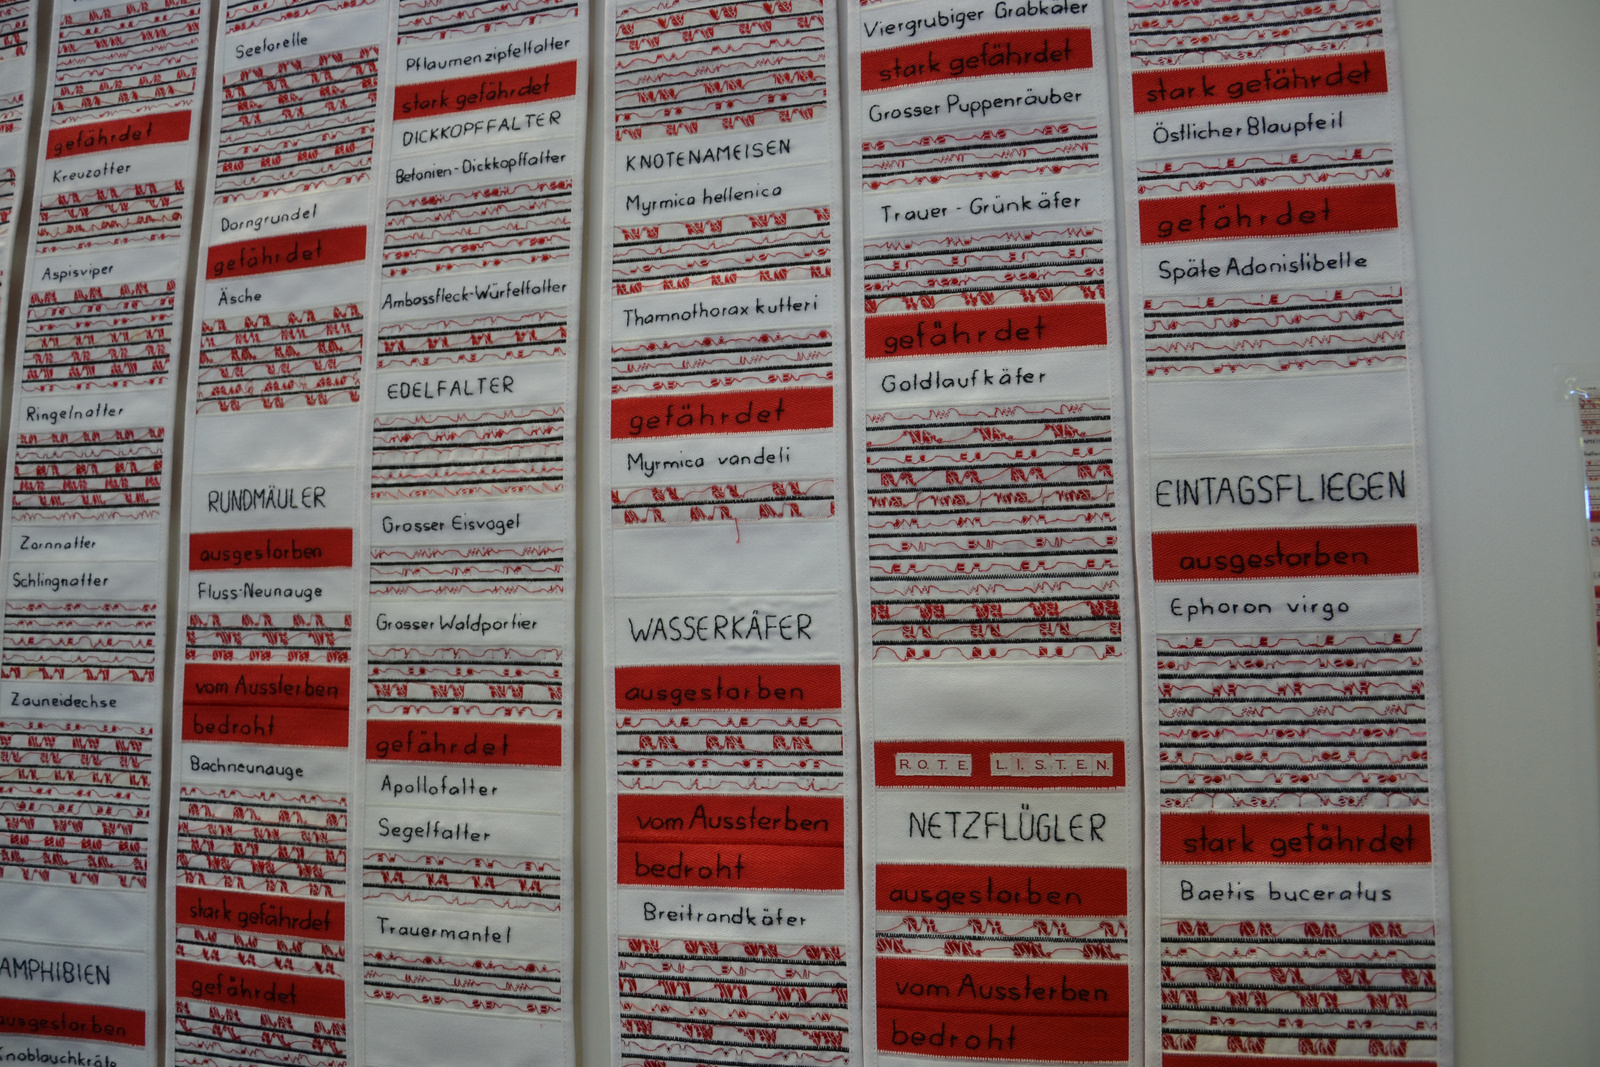 gefährdet
Kreuzotter
Aspisviper
Ringelnatter
Zornnatter
Schlingnatter
Zauneidechse
AMPHIBIEN
ausgestorben
Knoblauchkröte
Seeforelle
Dorngrundel
gefährdet
Äsche
RUNDMÄULER
ausgestorben
Fluss-Neunauge
vom Aussterben
bedroht
Bachneunauge
stark gefährdet
gefährdet
Pflaumenzipfelfalter
stark gefährdet
DICKKOPFFALTER
Betonien-Dickkopffalter
Ambossfleck-Würfelfalter
EDELFALTER
Grosser Eisvogel
Grosser Waldportier
gefährdet
Apollofalter
Segelfalter
Trauermantel
KNOTENAMEISEN
Myrmica hellenica
Thamnothorax kutteri
gefährdet
Myrmica vandeli
WASSERKÄFER
ausgestorben
vom Aussterben
bedroht
Breitrandkäfer
Viergrubiger Grabkäfer
stark gefährdet
Grosser Puppenräuber
Trauer-Grünkäfer
gefährdet
Goldlaufkäfer
ROTE LISTEN
NETZFLÜGLER
ausgestorben
vom Aussterben
bedroht
stark gefährdet
Östlicher Blaupfeil
gefährdet
Späte Adonislibelle
EINTAGSFLIEGEN
ausgestorben
Ephoron virgo
stark gefährdet
Baetis buceratus